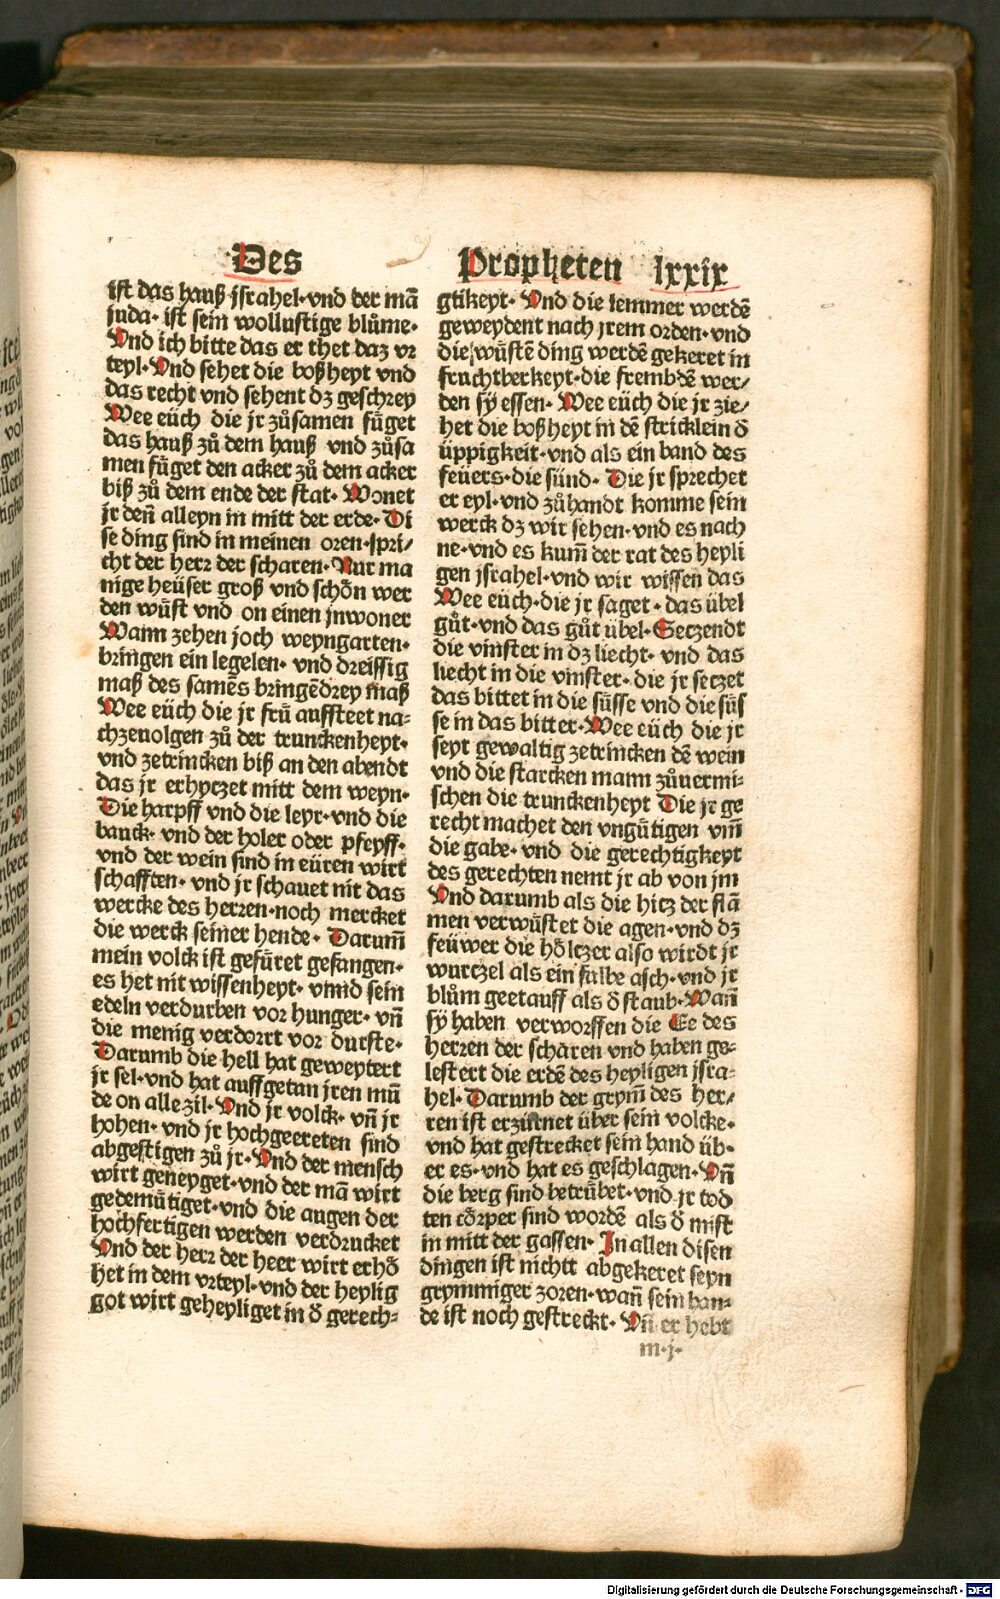 Des
ist das hauß jsrahel·vnd der mā
juda· ist sein wollustige blůme·
Vnd ich bitte das er thet daz vr
teyl·Vnd sehet die boßheyt vnd
das recht vnd sehent dz geschrey
Wee eüch die jr zůsamen fůget
das hauß zů dem hauß vnd zůsa
men fůget den acker zů dem acker
biß zů dem ende der stat· Wonet
jr den̄ alleyn in mitt der erde· Di
se ding sind in meinen oren·spri/
cht der herr der scharen· Nur ma
nige heüser groß vnd schōn wer
den wůst vnd on einen jnwoner
Wann zehen joch weyngarten·
bringen ein legelen· vnd dreissig
maß des samēs bringēdrey maß
Wee eüch die jr frů auffsteet na=
chzeuolgen zů der trunckenheyt·
vnd zetrincken biß an den abendt
das jr erhyczet mitt dem weyn·
Die harpff vnd die leyr·vnd die
bauck· vnd der holer oder pfeyff·
vnd der wein sind in eüren wirt
schafften· vnd jr schauet nit das
wercke des herren·noch mercket
die werck seiner hende· Darum̄
mein volck ist gefůret gefangen·
es het nit wissenheyt· vnnd sein
edeln verdurben vor hunger· vn̄
die menig verdorrt vor durste·
Darumb die hell hat geweytert
jr sel·vnd hat auffgetan jren mū
de on alle zil· Vnd jr volck· vn̄ jr
hohen· vnd jr hochgeereten sind
abgestigen zů jr·Vnd der mensch
wirt geneyget·vnd der mā wirt
gedemůtiget·vnd die augen der
hochfertigen werden verdrucket
Vnd der herr der heer wirt erhō
het in dem vrteyl·vnd der heylig
got wirt geheyliget in d̄ gerech=
Propheten lxxix
gtikeyt· Vnd die lemmer werdē
geweydent nach jrem orden·vnd
die wůstē ding werdē gekeret in
fruchtberkeyt·die frembdē wer/
den sÿ essen· Wee eüch die jr zie/
het die boßheyt in dē stricklein d̄
üppigkeit·vnd als ein band des
feüers·die sünd· Die jr sprechet
er eyl·vnd zůhandt komme sein
werck dz wir sehen·vnd es nach
ne·vnd es kum̄ der rat des heyli
gen jsrahel·vnd wir wissen das
Wee eüch·die jr saget·das übel
gůt·vnd das gůt übel·Seczendt
die vinster in dz liecht· vnd das
liecht in die vinster·die jr seczet
das bittet in die süsse vnd die süs
se in das bitter·Wee eüch die jr
seyt gewaltig zetrincken dē wein
vnd die starcken mann zůuermi=
schen die trunckenheyt Die jr ge
recht machet den vngůtigen vm̄
die gabe·vnd die gerechtigkeyt
des gerechten nemt jr ab von jm
Vnd darumb als die hicz der flā
men verwůstet die agen·vnd dz
feüwer die hōlczer also wirdt jr
wurczel als ein falbe asch·vnd jr
blům geetauff als d̄ staub·Wan̄
sÿ haben verworffen die Ee des
herren der scharen vnd haben ge=
lestert die erdē des heyligen jsra=
hel·Darumb der grym̄ des her/
ren ist erzürnet über sein volcke·
vnd hat gestrecket sein hand üb=
er es·vnd hat es geschlagen·Vn̄
die berg sind betrůbet·vnd jr tod
ten cōrper sind wordē als d̄ mist
in mitt der gassen· In allen disen
dingen ist nichtt abgekeret seyn
grymmiger zoren·wan̄ sein han=
de ist noch gestreckt· Vn̄ er hebt
m·j·
Digitalisierung gefördert durch die Deutsche Forschungsgemeinschaft - DFG